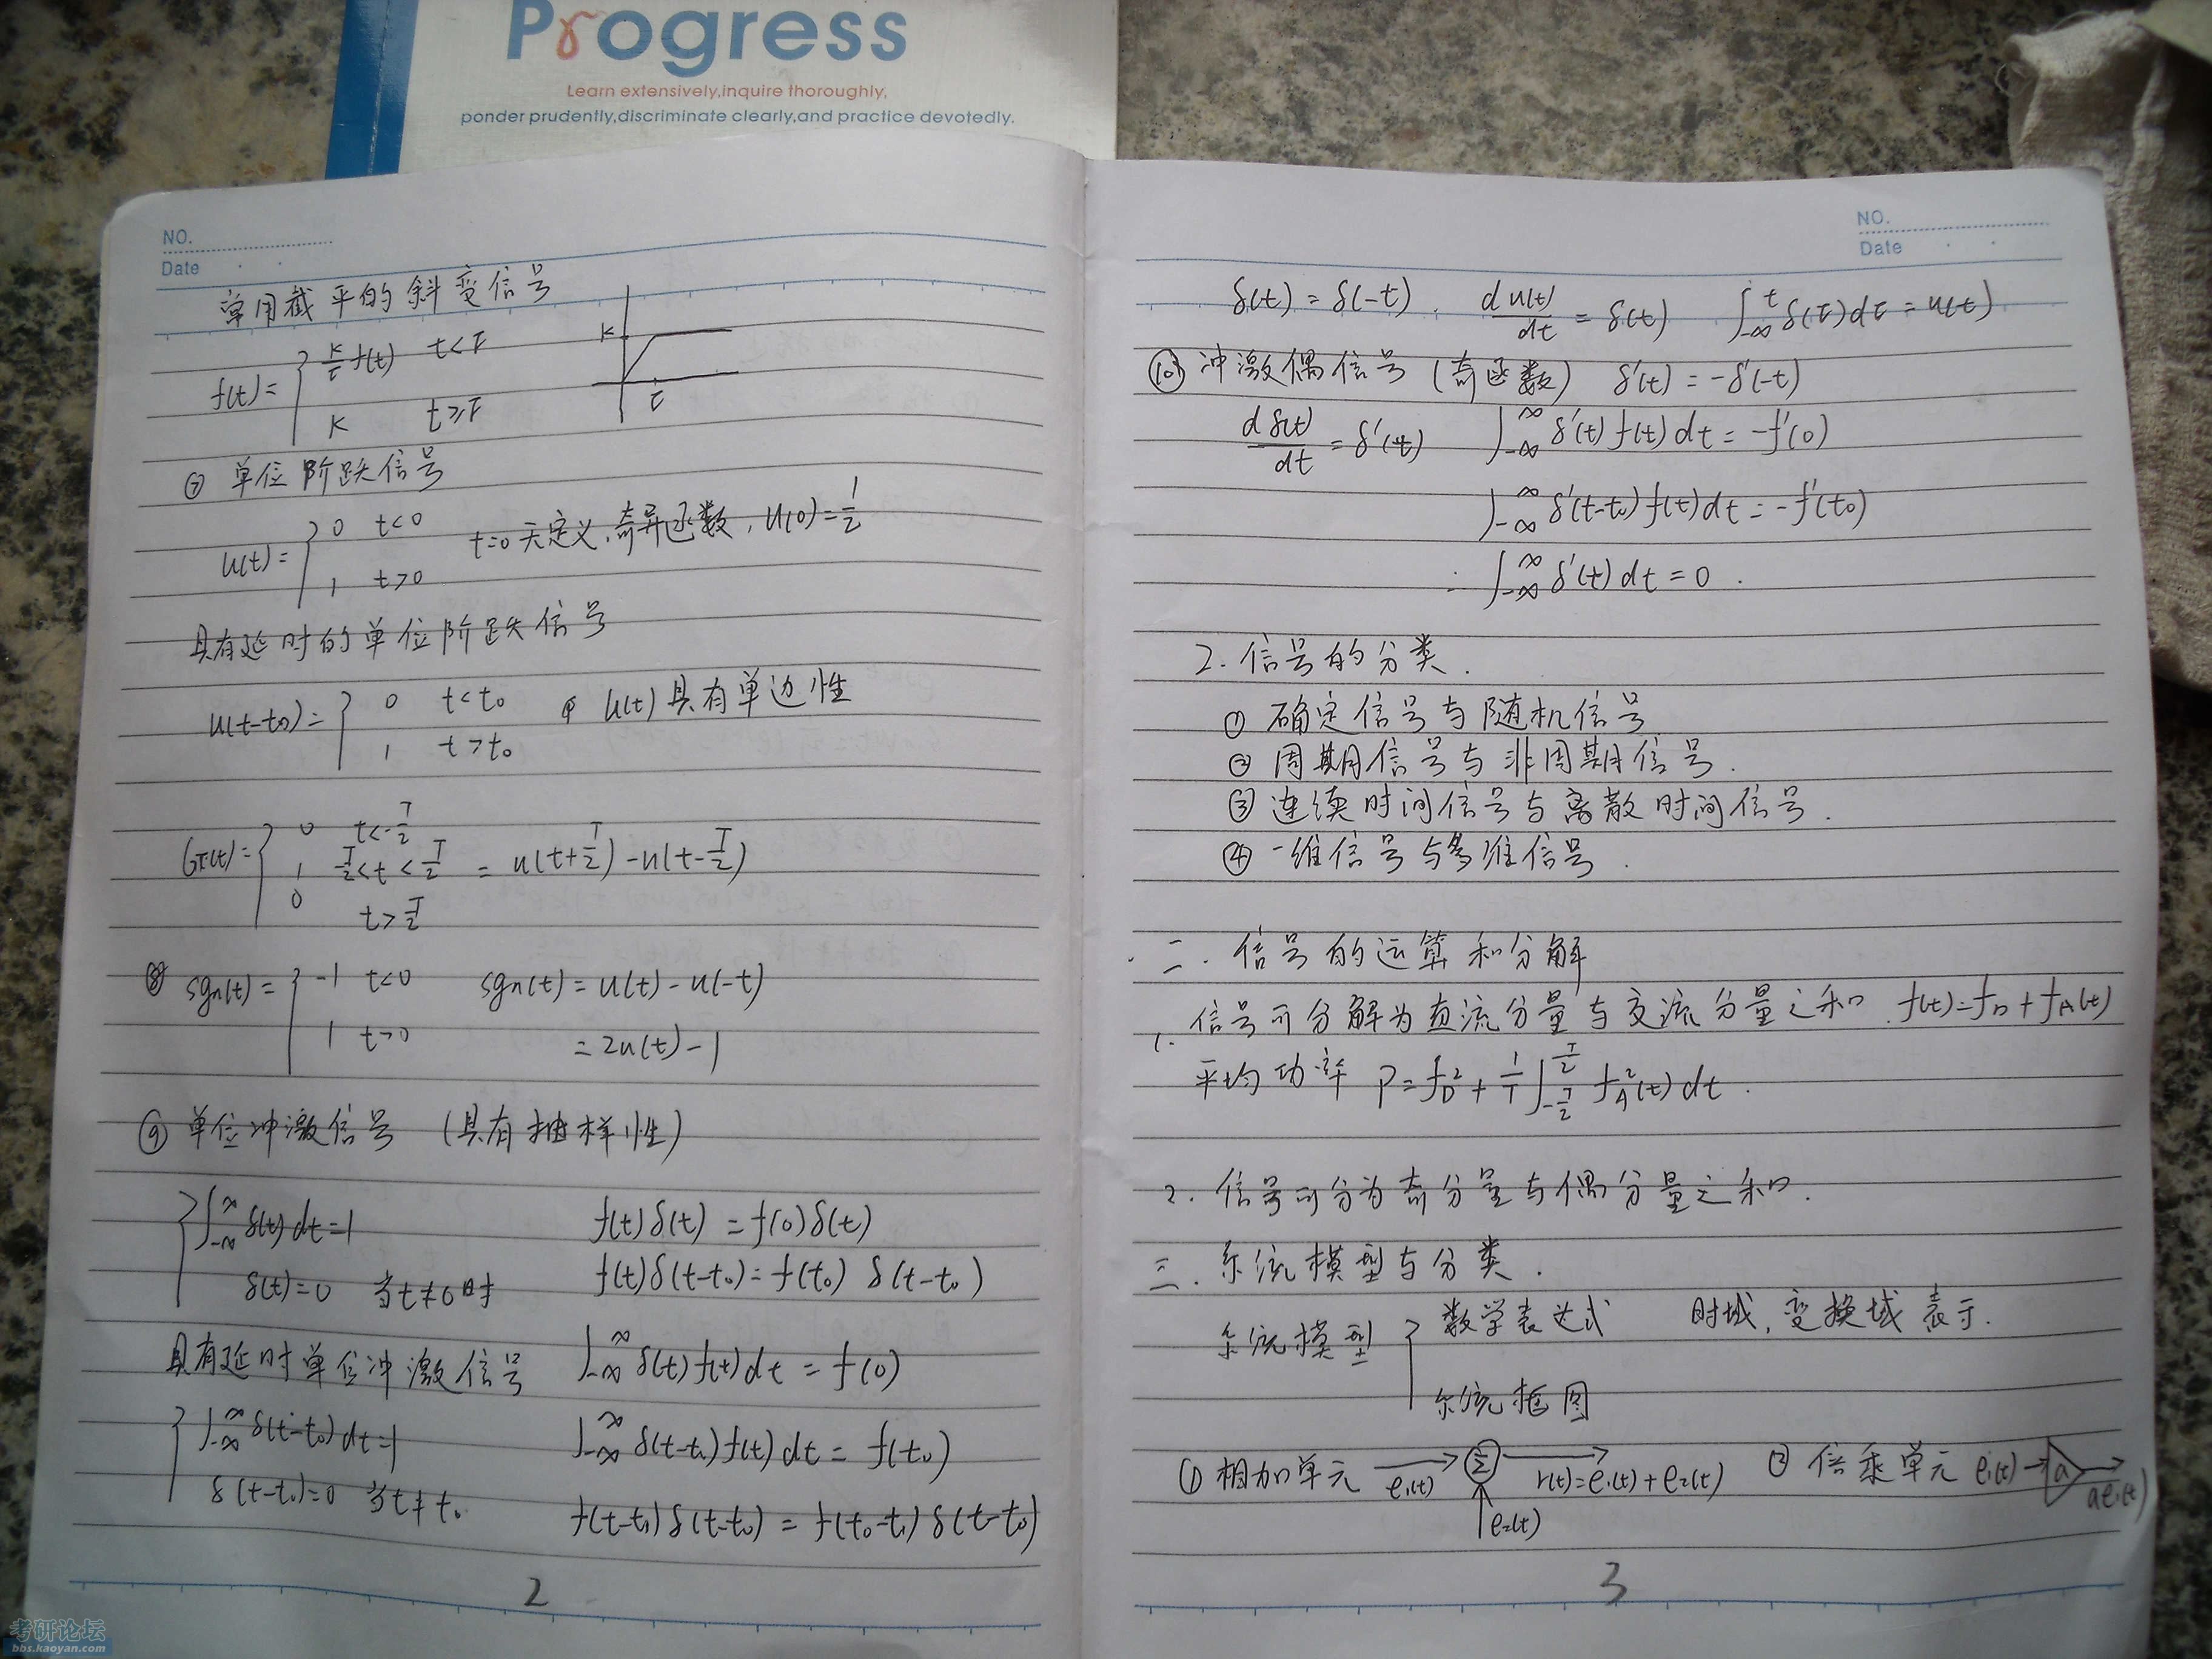 Progress
Learn extensively,inquire thoroughly,
ponder prudently,discriminate clearly,and practice devotedly.
NO.
Date
常用截平的斜变信号
f(t)= { K/τ f(t) t<τ
K t≥τ
K
τ
⑦ 单位阶跃信号
u(t)= { 0 t<0
1 t>0
t=0无定义,奇异函数, u(0)=1/2
具有延时的单位阶跃信号
u(t-t₀)= { 0 t<t₀ u(t)具有单边性
1 t>t₀
Gτ(t)= { 0 t<-τ/2
1 -τ/2<t<τ/2 = u(t+τ/2)-u(t-τ/2)
0 t>τ/2
⑧ sgn(t)= { -1 t<0 sgn(t)=u(t)-u(-t)
1 t>0 =2u(t)-1
⑨ 单位冲激信号 (具有抽样性)
{ ∫_{-∞}^{∞} δ(t)dt=1 f(t)δ(t)=f(0)δ(t)
δ(t)=0 当t≠0时 f(t)δ(t-t₀)=f(t₀)δ(t-t₀)
具有延时单位冲激信号 ∫_{-∞}^{∞} δ(t)f(t)dt=f(0)
{ ∫_{-∞}^{∞} δ(t-t₀)dt=1 ∫_{-∞}^{∞} δ(t-t₀)f(t)dt=f(t₀)
δ(t-t₀)=0 当t≠t₀ f(t-t₁)δ(t-t₀)=f(t₀-t₁)δ(t-t₀)
2
NO.
Date
δ(t)=δ(-t). du(t)/dt=δ(t) ∫_{-∞}^{t} δ(τ)dτ=u(t)
⑩ 冲激偶信号 (奇函数) δ'(t)=-δ'(-t)
dδ(t)/dt=δ'(t) ∫_{-∞}^{∞} δ'(t)f(t)dt=-f'(0)
∫_{-∞}^{∞} δ'(t-t₀)f(t)dt=-f'(t₀)
∫_{-∞}^{∞} δ'(t)dt=0.
2. 信号的分类.
① 确定信号与随机信号
② 周期信号与非周期信号.
③ 连续时间信号与离散时间信号.
④ 一维信号与多维信号.
二. 信号的运算和分解
1. 信号可分解为直流分量与交流分量之和. f(t)=f_D+f_A(t)
平均功率 P=f_D²+1/T ∫_{-T/2}^{T/2} f_A²(t)dt.
2. 信号可分为奇分量与偶分量之和.
三. 系统模型与分类.
系统模型 { 数学表达式 时域,变换域表示.
系统框图
① 相加单元 e₁(t) Σ r(t)=e₁(t)+e₂(t) ② 倍乘单元 e₁(t) a ae₁(t)
e₂(t)
3
考研论坛
bbs.kaoyan.com